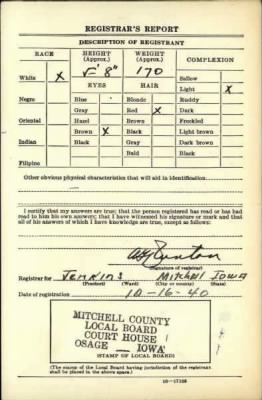 REGISTRAR'S REPORT
DESCRIPTION OF REGISTRANT
RACE HEIGHT (Approx.) WEIGHT (Approx.) COMPLEXION
White X 5' 8" 170 Sallow
EYES HAIR Light X
Negro Blue Blonde Ruddy
Gray Red X Dark
Oriental Hazel Brown Freckled
Brown X Black Light brown
Indian Black Gray Dark brown
Bald Black
Filipino
Other obvious physical characteristics that will aid in identification
I certify that my answers are true; that the person registered has read or has had
read to him his own answers; that I have witnessed his signature or mark and that
all of his answers of which I have knowledge are true, except as follows:
(Signature of registrar)
Registrar for Jenkins Mitchell Iowa
(Precinct) (Ward) (City or county) (State)
Date of registration 10-16-40
MITCHELL COUNTY
LOCAL BOARD
COURT HOUSE
OSAGE IOWA
(STAMP OF LOCAL BOARD)
(The stamp of the Local Board having jurisdiction of the registrant
shall be placed in the above space.)